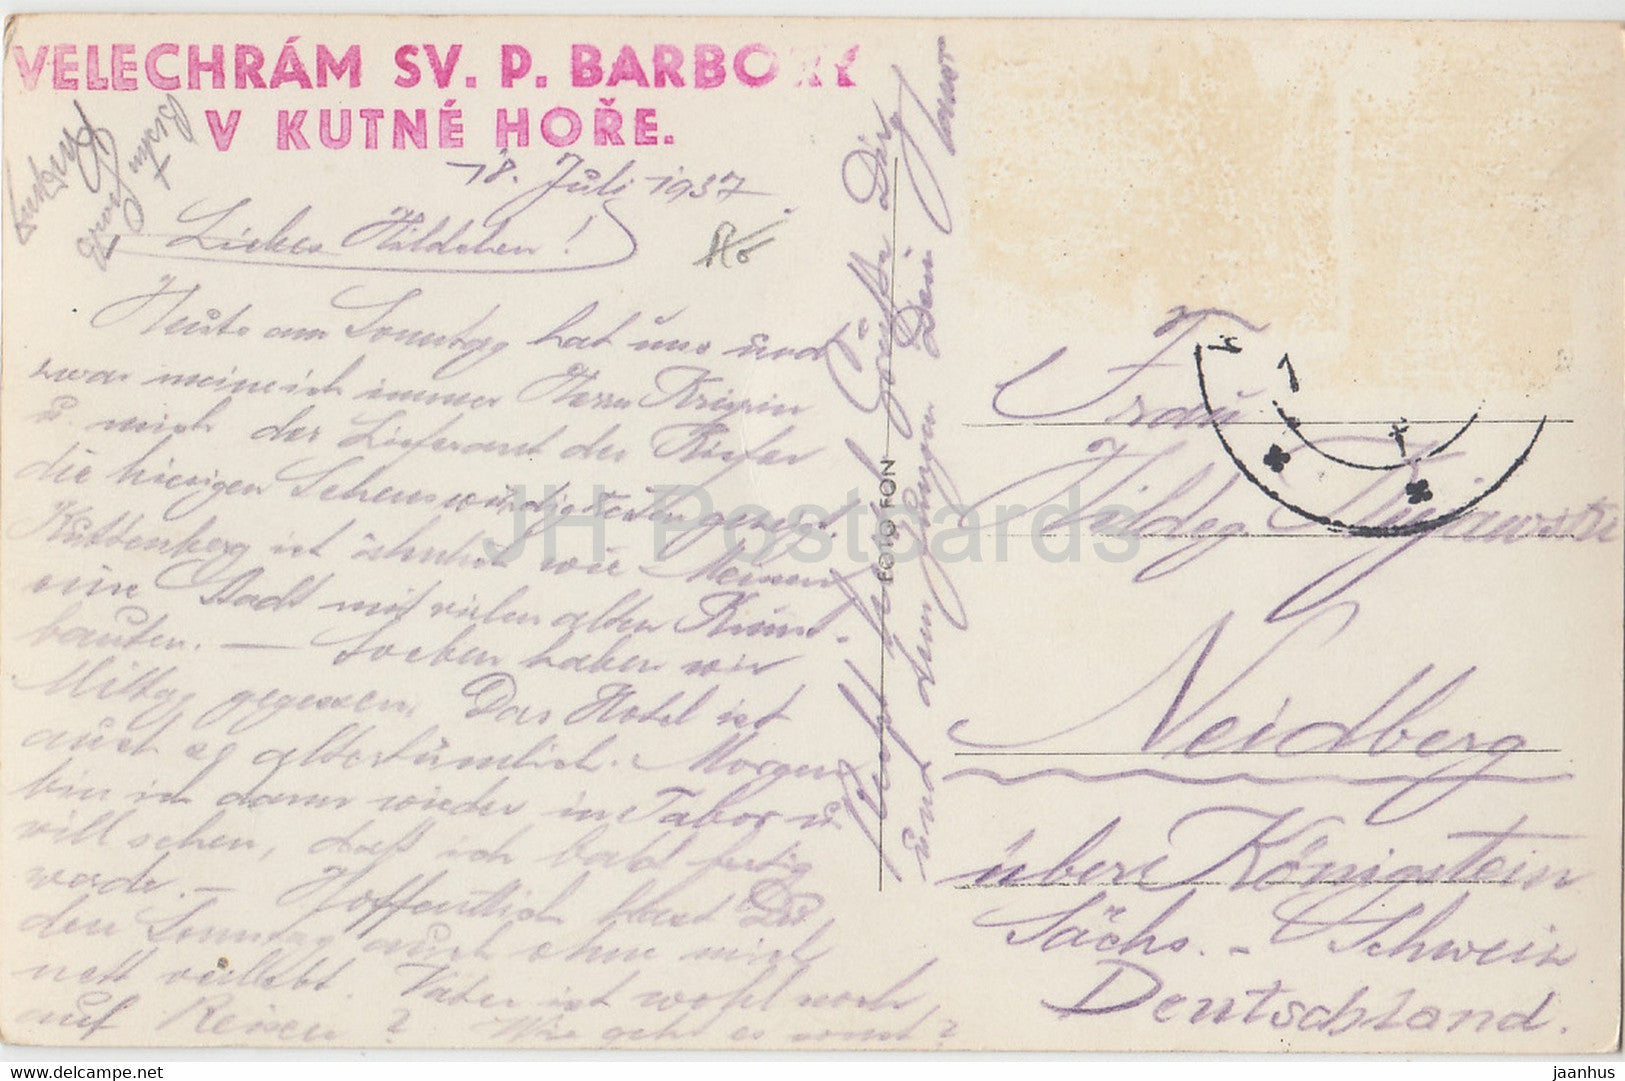 VELECHRÁM SV. P. BARBORY
V KUTNÉ HOŘE.
18. Juli 1937.
Liebes Hildchen!
Heute am Sonntag hat uns und
zwar meine ich immer Herrn
u. mich der Lieferant der
die hiesigen Sehenswürdigkeiten gezeigt.
Kuttenberg ist ähnlich wie Meissen,
eine Stadt mit vielen alten Kunst-
bauten. — Soeben haben wir
Mittag gegessen. Das Hotel ist
auch so altertümlich. Morgen
bin ich dann wieder in Tabor u.
will sehen, daß ich bald fertig
werde. — Hoffentlich hast Du
den Sonntag auch ohne mich
nett verlebt. Vater ist wohl noch
auf Reisen? Wie geht es sonst?
Recht herzlich grüßt Dich
und den Jungen Dein
FOTO FON
Frau
Hildeg.
Neidberg
über Königstein
Sächs. - Schweiz
Deutschland.
JH Postcards
jaanhus
www.delcampe.net